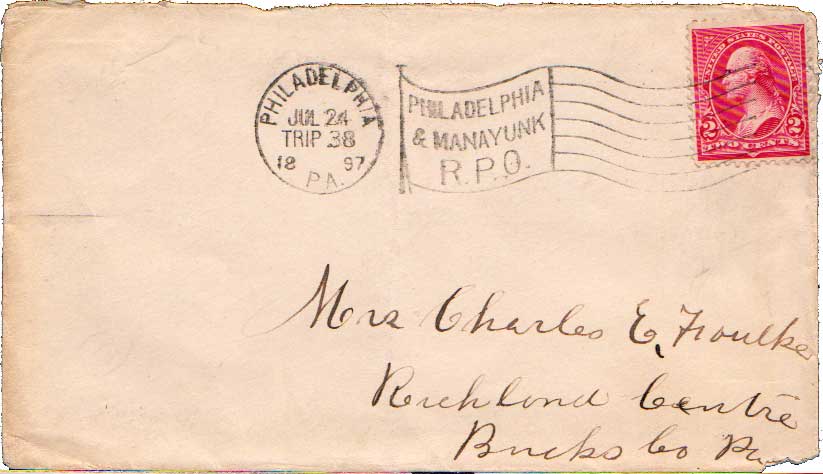 PHILADELPHIA
JUL 24
TRIP 38
18 97
PA.
PHILADELPHIA
& MANAYUNK
R.P.O.
UNITED STATES POSTAGE
2 2
TWO CENTS
Mrs Charles E. Foulke
Richland Centre
Bucks Co Pa